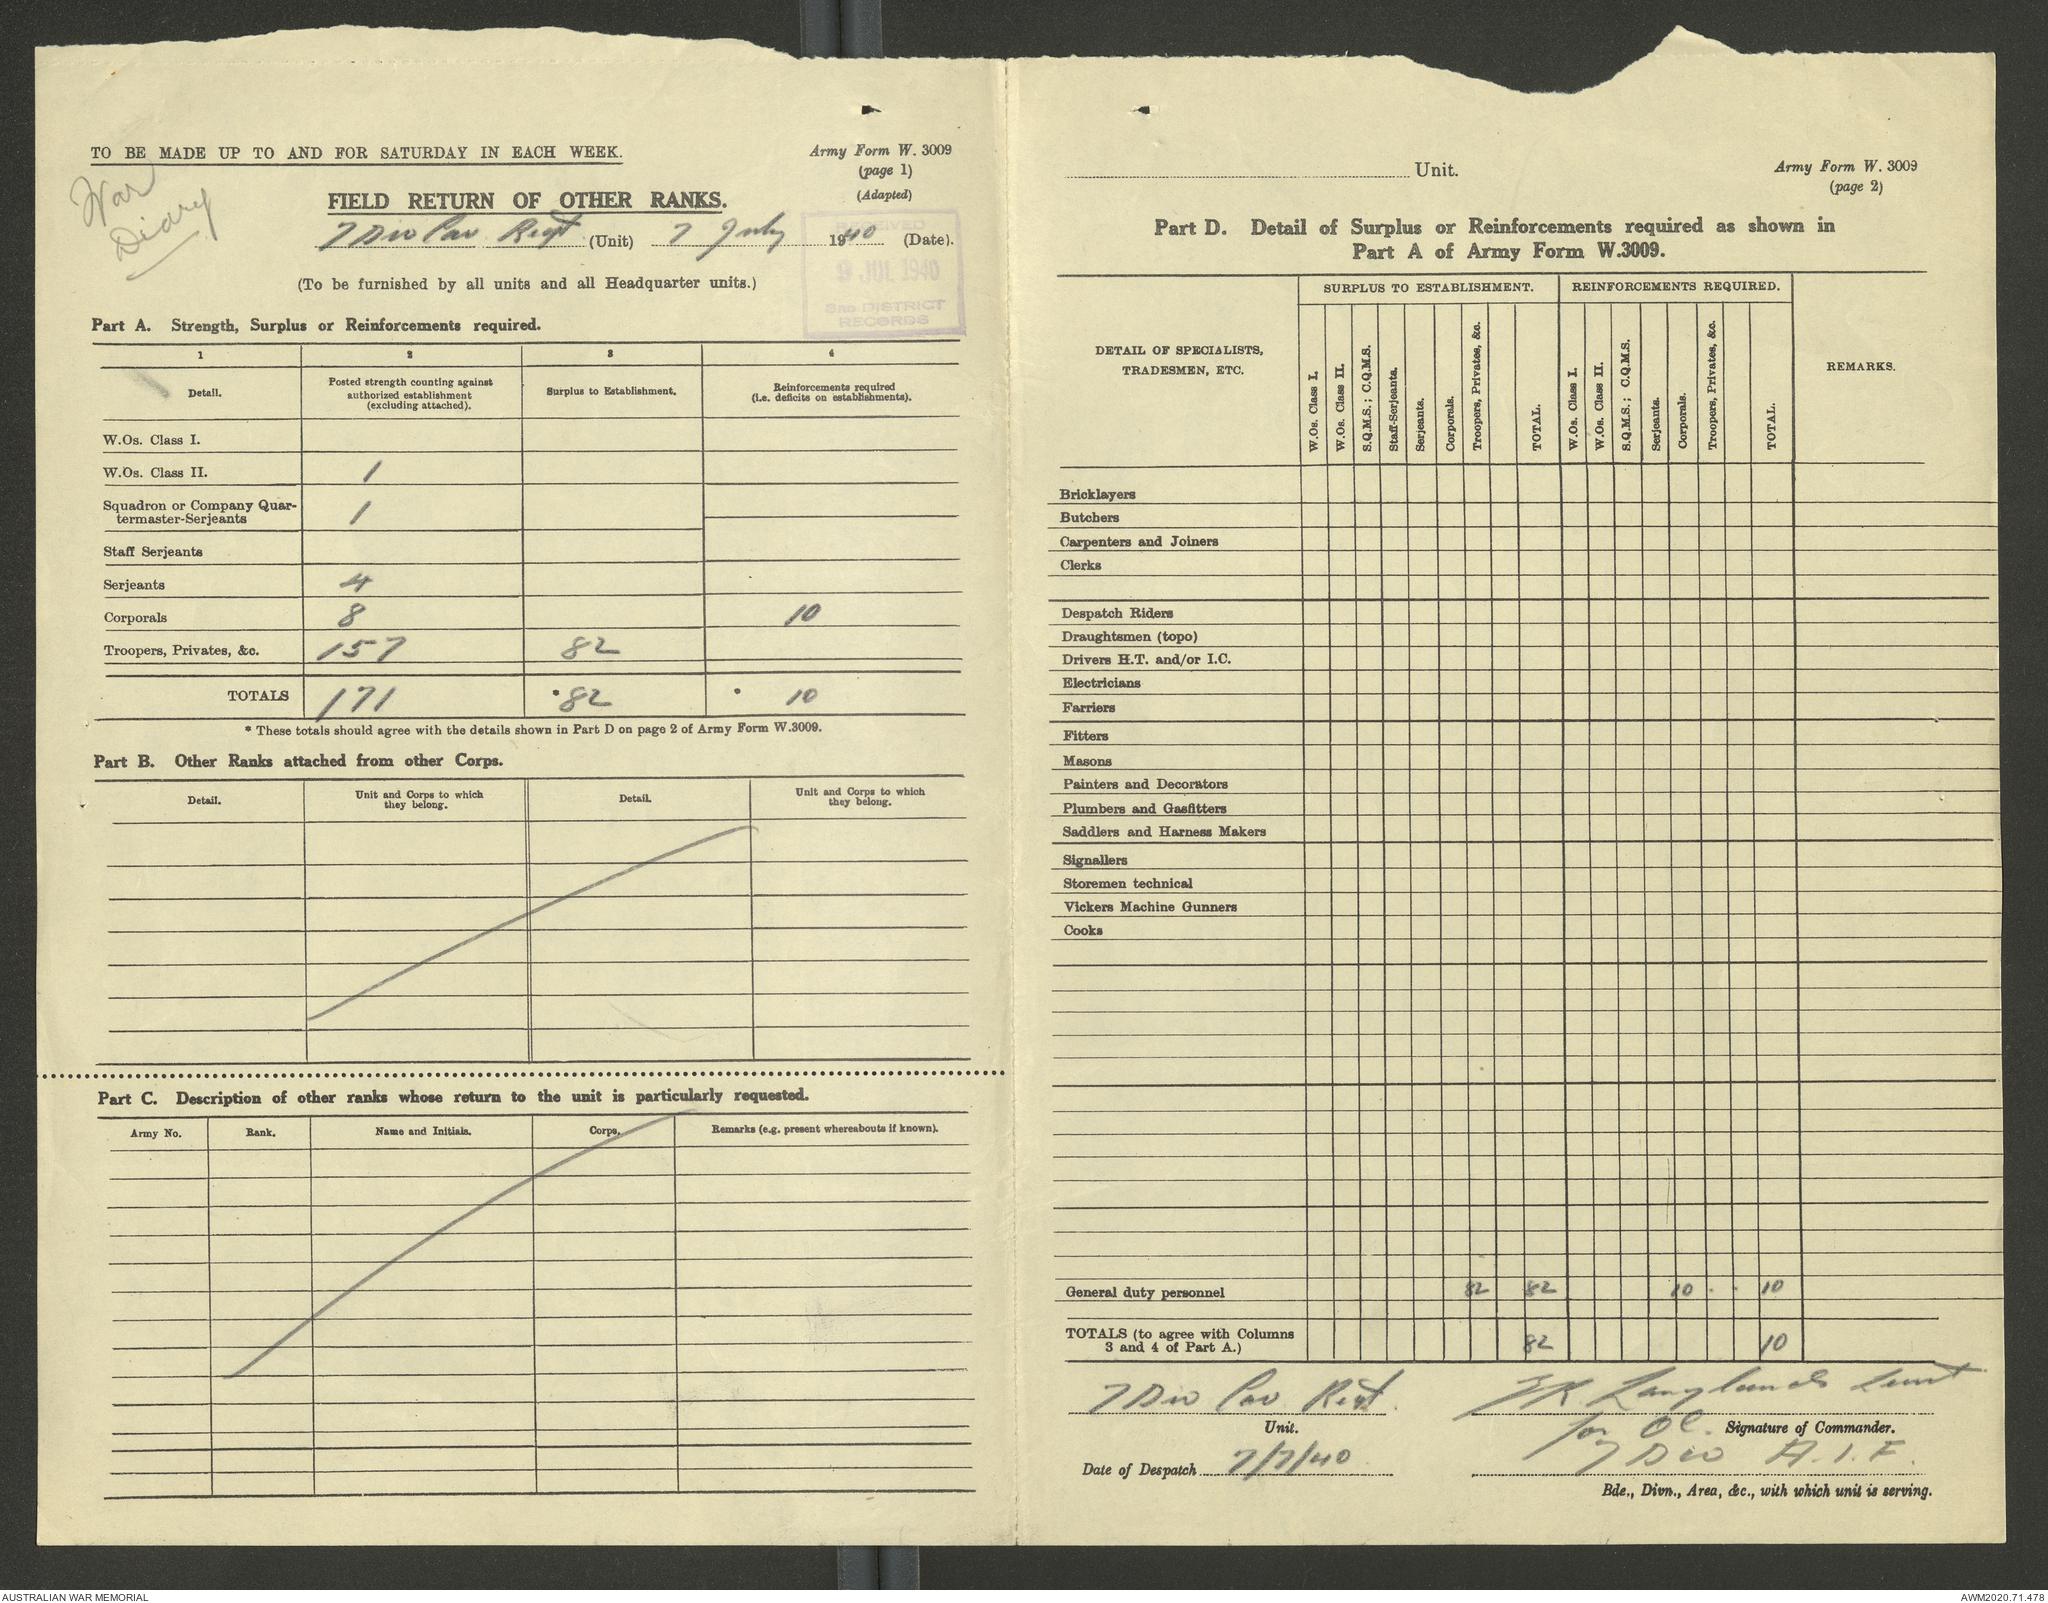 TO BE MADE UP TO AND FOR SATURDAY IN EACH WEEK.
Army Form W. 3009
(page 1)
(Adapted)
War
Diary
FIELD RETURN OF OTHER RANKS.
7 Div Cav Regt (Unit) 7 July 1940 (Date).
RECEIVED
9 JUL 1940
3RD DISTRICT
RECORDS
(To be furnished by all units and all Headquarter units.)
Part A. Strength, Surplus or Reinforcements required.
1 2 3 4
Detail.
Posted strength counting against
authorized establishment
(excluding attached).
Surplus to Establishment.
Reinforcements required
(i.e. deficits on establishments).
W.Os. Class I.
W.Os. Class II. 1
Squadron or Company Quar-
termaster-Serjeants 1
Staff Serjeants
Serjeants 4
Corporals 8 10
Troopers, Privates, &c. 157 82
TOTALS 171 *82 * 10
* These totals should agree with the details shown in Part D on page 2 of Army Form W.3009.
Part B. Other Ranks attached from other Corps.
Detail.
Unit and Corps to which
they belong.
Detail.
Unit and Corps to which
they belong.
Part C. Description of other ranks whose return to the unit is particularly requested.
Army No. Rank. Name and Initials. Corps. Remarks (e.g. present whereabouts if known).
Unit.
Army Form W. 3009
(page 2)
Part D. Detail of Surplus or Reinforcements required as shown in
Part A of Army Form W.3009.
DETAIL OF SPECIALISTS,
TRADESMEN, ETC.
SURPLUS TO ESTABLISHMENT.
W.Os. Class I.
W.Os. Class II.
S.Q.M.S.; C.Q.M.S.
Staff-Serjeants.
Serjeants.
Corporals.
Troopers, Privates, &c.
TOTAL.
REINFORCEMENTS REQUIRED.
W.Os. Class I.
W.Os. Class II.
S.Q.M.S.; C.Q.M.S.
Serjeants.
Corporals.
Troopers, Privates, &c.
TOTAL.
REMARKS.
Bricklayers
Butchers
Carpenters and Joiners
Clerks
Despatch Riders
Draughtsmen (topo)
Drivers H.T. and/or I.C.
Electricians
Farriers
Fitters
Masons
Painters and Decorators
Plumbers and Gasfitters
Saddlers and Harness Makers
Signallers
Storemen technical
Vickers Machine Gunners
Cooks
General duty personnel 82 82 10 10
TOTALS (to agree with Columns
3 and 4 of Part A.) 82 10
7 Div Cav Regt.
Unit.
Langlands Lieut
for OC. Signature of Commander.
Date of Despatch 7/7/40
7 Div A.I.F.
Bde., Divn., Area, &c., with which unit is serving.
AUSTRALIAN WAR MEMORIAL
AWM2020.71.478